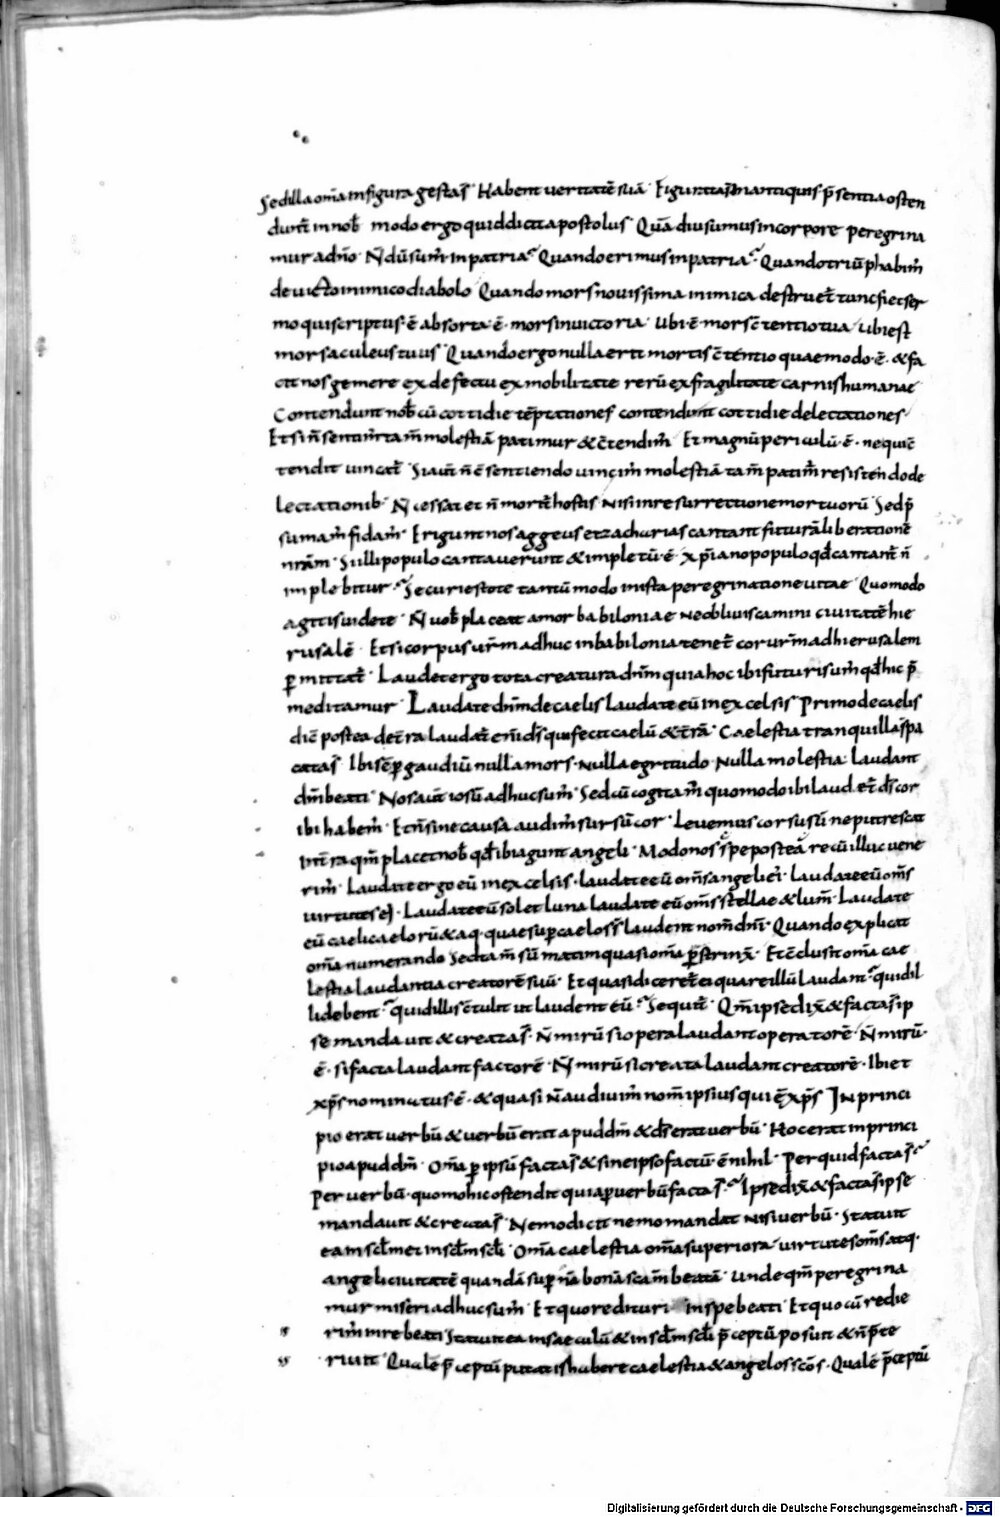 Sed illa om̅a in figura gesta s̅ · Habent veritate̅ sua̅ · Figurata s̅ in antiquis p̅sentia osten
dunt̅ in nob̅ · modo ergo quid dicit apostolus · Qua̅ diu sumus in corpore peregrina
mur ad n̅o · N̅ du̅ sum̅ in patria · Quando erimus in patria · Quando triu̅phabim̅
devicto inimico diabolo Quando mors novissima inimica destruet̅ tunc fiet ser
mo qui scriptus · e̅ absorta · e̅ · mors in victoria · ubi · e̅ mors c̅tentio tua · ubi est
mors aculeus tuus · Quando ergo nulla erit mortis c̅tentio quae modo · e̅ · & fa
cit nos gemere ex defectu ex mobilitate reru̅ ex fragilitate carnis humanae
Contendunt nob̅ cu̅ cottidie te̅ptationes contendunt cottidie delectationes
Et si n̅ sentim̅ tam̅ molestia̅ patimur & c̅tendim̅ · Et magnu̅ periculu̅ · e̅ · ne qui c̅
tendit vincat̅ · Si aut̅ n̅ c̅sentiendo vincim̅ molestia̅ tam̅ patim̅ resistendo de
lectationib · N̅ cessat et n̅ morit̅ hostis nisi in resurrectione mortuoru̅ · Sed p̅
sumam̅ fidam̅ · Erigunt nos aggeus et zacharias cantant futura̅ liberatione̅
nr̅am · Si illi populo cantaverunt & impletu̅ · e̅ · xp̅iano populo qd̅ cantant̅ n̅
implebitur · Securi estote tantu̅ modo in ista peregrinatione vitae · Quomodo
agitis videte · N̅ vob̅ placeat amor babiloniae ne obliviscamini civitate̅ hie
rusale̅ · Et si corpus ur̅m adhuc in babilonia tenet̅ cor ur̅m ad hierusalem
p̅mittat̅ · Laudet ergo tota creatura dn̅m quia hoc ibi futuri sum̅ qd̅ hic p̅
meditamur · Laudate dn̅m de caelis laudate eu̅ in excelsis · Primo de caelis
dic̅ postea de t̅ra laudat̅ eni̅ ds̅ qui fecit caelu̅ & t̅ra̅ · Caelestia tranquilla s̅ pa
cata s̅ · Ibi se̅p gaudiu̅ nulla mors · nulla egritudo · nulla molestia · laudant
dm̅ beati · Nos aut̅ iosu̅ adhuc sum̅ · Sed cu̅ cogitam̅ quomodo ibi laudet̅ ds̅ cor
ibi habem̅ · Et n̅ sine causa audim̅ sursu̅ cor · Levemus cor susu̅ ne putrescat
int̅ra qm̅ placet nob̅ qd̅ ibi agunt angeli · Modo nos spe postea re cu̅ illuc vene
rim̅ · Laudate ergo eu̅ in excelsis · laudate eu̅ om̅s angeli ei̅ · laudate eu̅ om̅s
virtutes ej · Laudate eu̅ sol et luna laudate eu̅ om̅s stellae & lum̅ · Laudate
eu̅ caeli caeloru̅ & aq · quae sup̅ caelos s̅ laudent nom̅ dn̅i · Quando explicat
om̅a numerando Sed tam̅ su̅matim quasi om̅a p̅strinx̅ · Et c̅clusit om̅a cae
lestia laudantia creatore̅ suu̅ · Et quasi diceret̅ ei quare illu̅ laudant · quid il
li debent · quid illis c̅tulit ut laudent eu̅ · Sequit̅ · Qm̅ ipse dix̅ & facta s̅ ip
se mandavit & creata s̅ · N̅ miru̅ si opera laudant operatore̅ · N̅ miru̅ ·
e̅ · si facta laudant factore̅ · N̅ miru̅ si creata laudant creatore̅ · Ibi et
xp̅s nominatus · e̅ · & quasi n̅ audivim̅ nom̅ ipsius qui · e̅ xp̅s In princi
pio erat verbu̅ & verbu̅ erat apud dm̅ & ds̅ erat verbu̅ · Hoc erat in princi
pio apud dm̅ · Om̅a p̅ ipsu̅ facta s̅ & sine ipso factu̅ · e̅ nihil · Per quid facta s̅
per verbu̅ · quomo hic ostendit quia p̅ verbu̅ facta s̅ · Ipse dix̅ & facta s̅ ipse
mandavit & creata s̅ · Nemo dicit nemo mandat nisi verbu̅ · Statuit
ea in scl̅m et in scl̅m scl̅i · Om̅a caelestia om̅a superiora virtutes om̅s atq ·
angeli civitate̅ quanda̅ sup̅na̅ bona̅ scam̅ beata̅ · Unde qm̅ peregrina
mur miseri adhuc sum̅ · Et quo redituri in spe beati · Et quo cu̅ redie
rim̅ in re beati Statuit ea in saeculu̅ & in scl̅m scl̅i p̅ceptu̅ posuit & n̅ p̅te
riit · Quale p̅ceptu̅ putatis habere caelestia & angelos sc̅os · Quale p̅ceptu̅